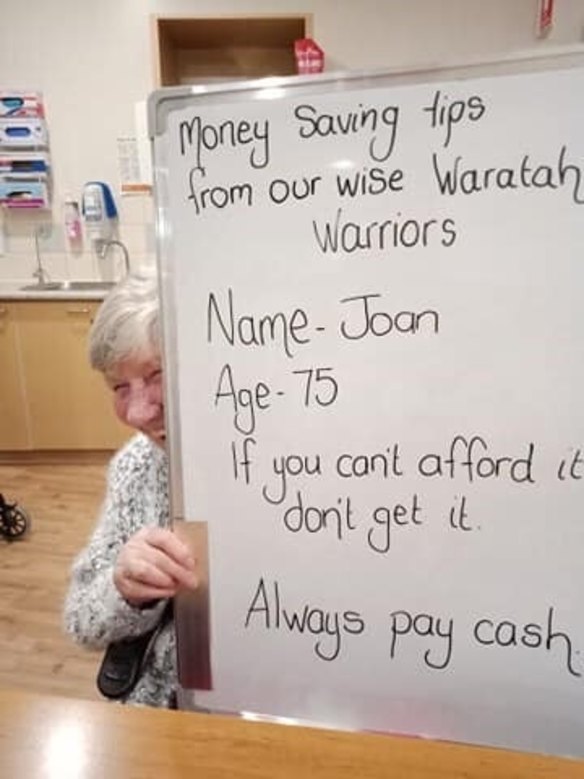 Money Saving tips
from our wise Waratah
Warriors
Name- Joan
Age- 75
If you can't afford it
don't get it.
Always pay cash.